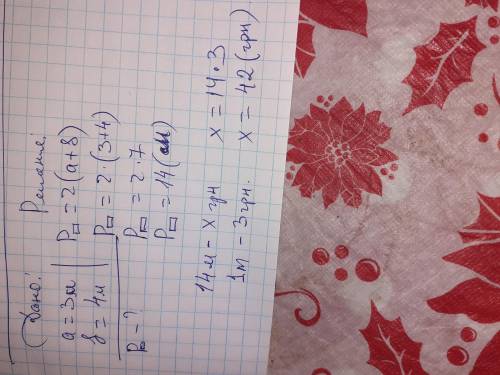 Дано: Решение:
a = 3м | P▭ = 2(a+в)
в = 4м | P▭ = 2·(3+4)
P▭ - ? P▭ = 2·7
P▭ = 14(м)
14м - x грн x = 14·3
1м - 3грн. x = 42(грн)